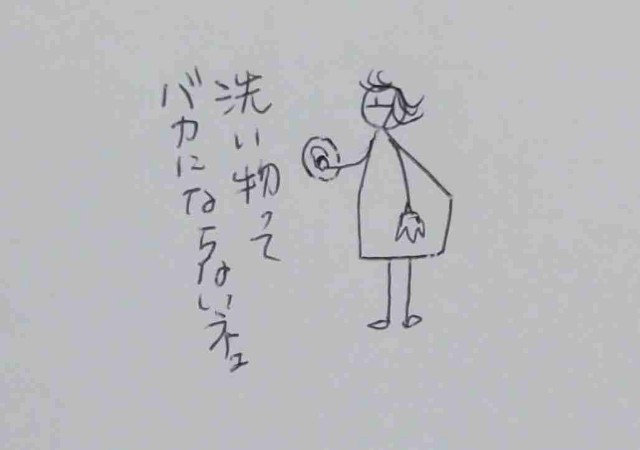 洗い物って
バカにならないネェ